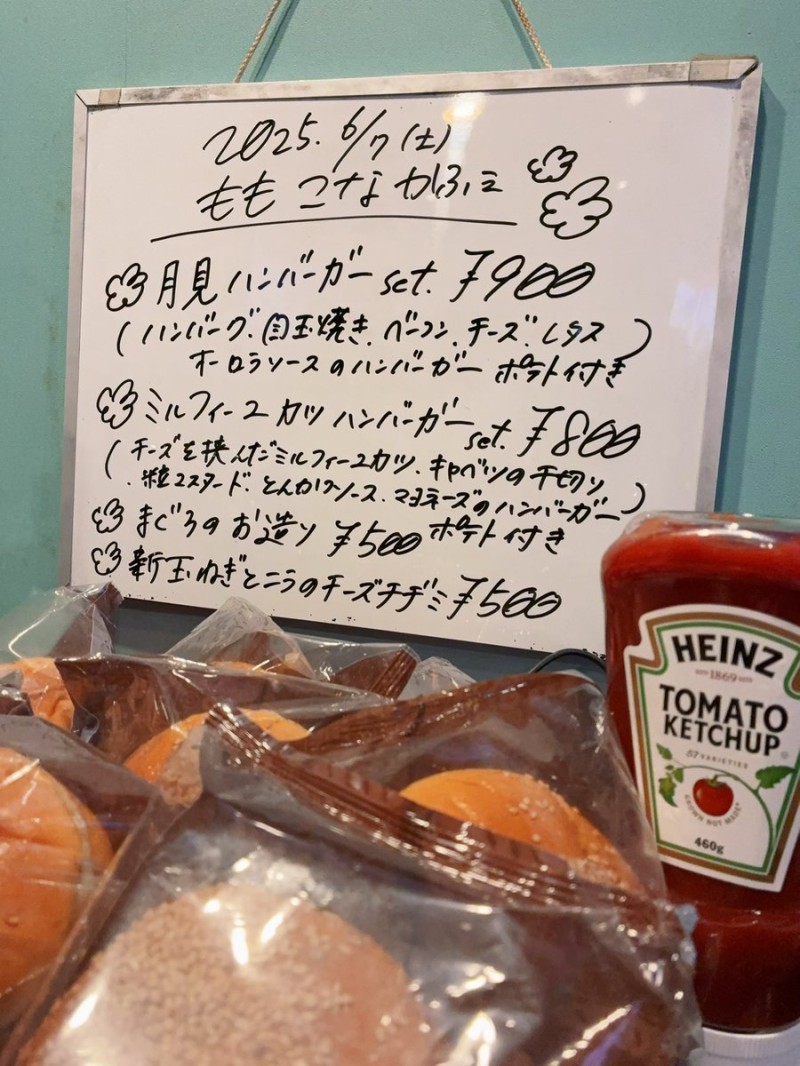 2025. 6/7(土)
ももこなかふぇ
月見ハンバーガーset. ¥900
(ハンバーグ.目玉焼き.ベーコン.チーズ.レタス
オーロラソースのハンバーガー ポテト付き)
ミルフィーユカツハンバーガーset. ¥800
(チーズを挟んだミルフィーユカツ.キャベツの千切り
.粒マスタード.とんかつソース.マヨネーズのハンバーガー)
ポテト付き
まぐろのお造り ¥500
新玉ねぎとニラのチーズチヂミ ¥500
HEINZ
1869
TOMATO
KETCHUP
57 VARIETIES
GROWN NOT MADE
460g